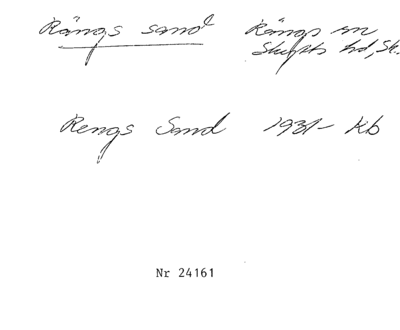 Rängs sand Rängs sn
Skytts hd, Sk.
Rengs Sand 1931- kb
Nr 24161